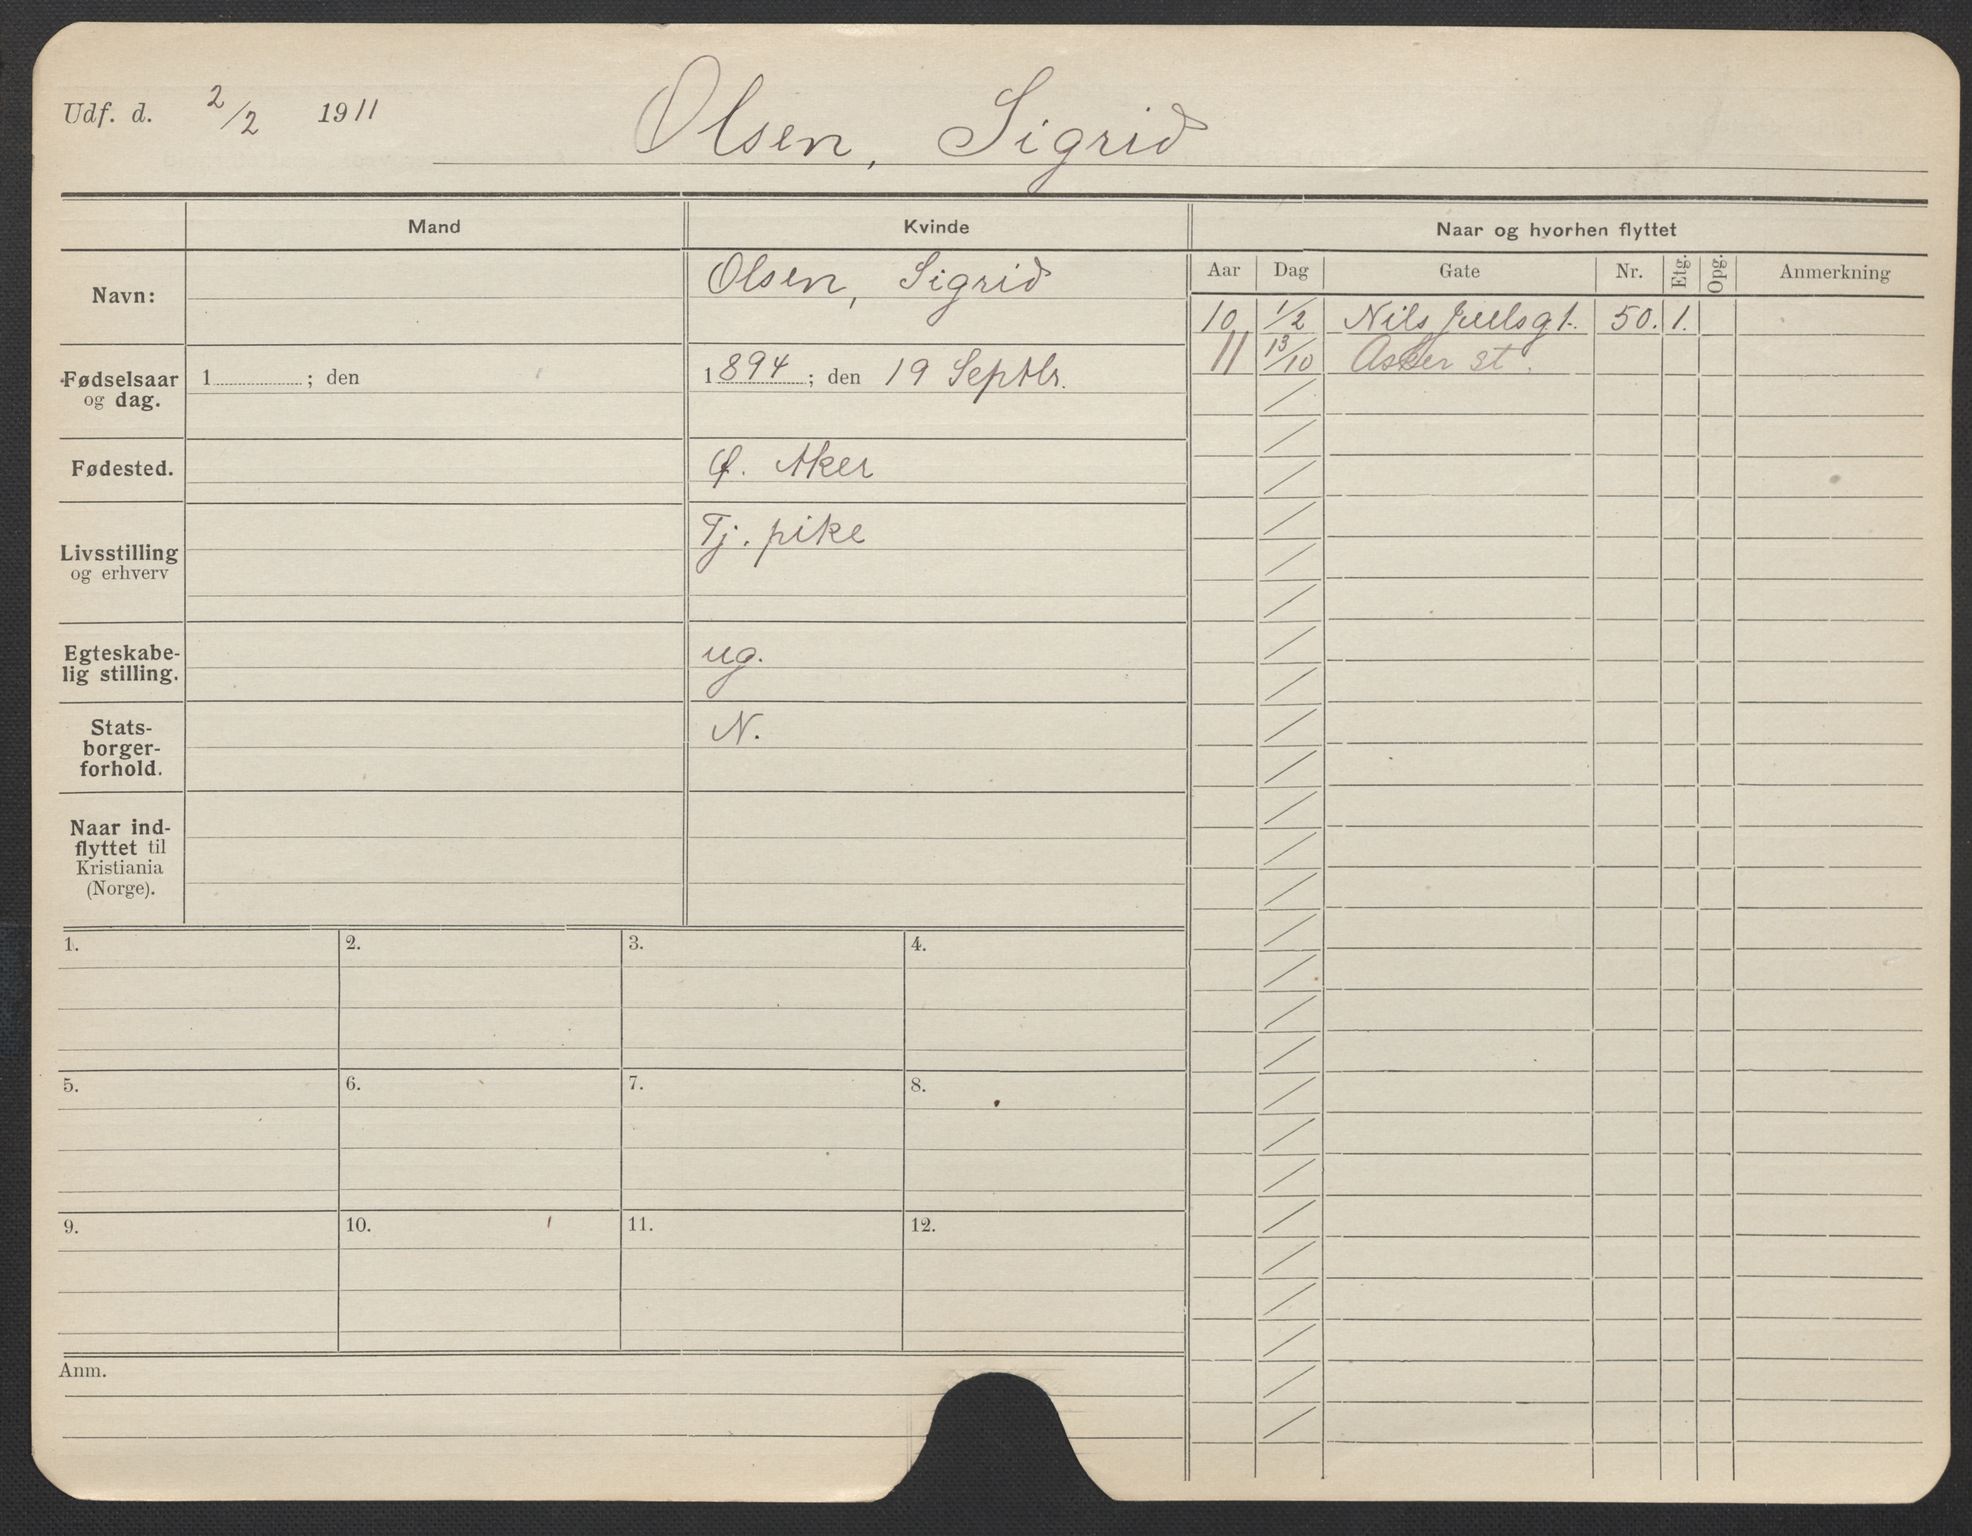 Udf. d. 2/2 1911
Olsen, Sigrid
Mand
Kvinde
Naar og hvorhen flyttet
Aar Dag Gate Nr. Etg. Opg. Anmerkning
Navn:
Olsen, Sigrid
10 1/2 Nils Juelsgt. 50. 1.
11 13/10 Asker st.
Fødselsaar
og dag.
1 ; den
1894 ; den 19 Septbr.
Fødested.
Ø. Aker
Livsstilling
og erhverv
Tj. pike
Egteskabe-
lig stilling.
ug.
Stats-
borger-
forhold.
N.
Naar ind-
flyttet til
Kristiania
(Norge).
1. 2. 3. 4.
5. 6. 7. 8.
9. 10. 11. 12.
Anm.